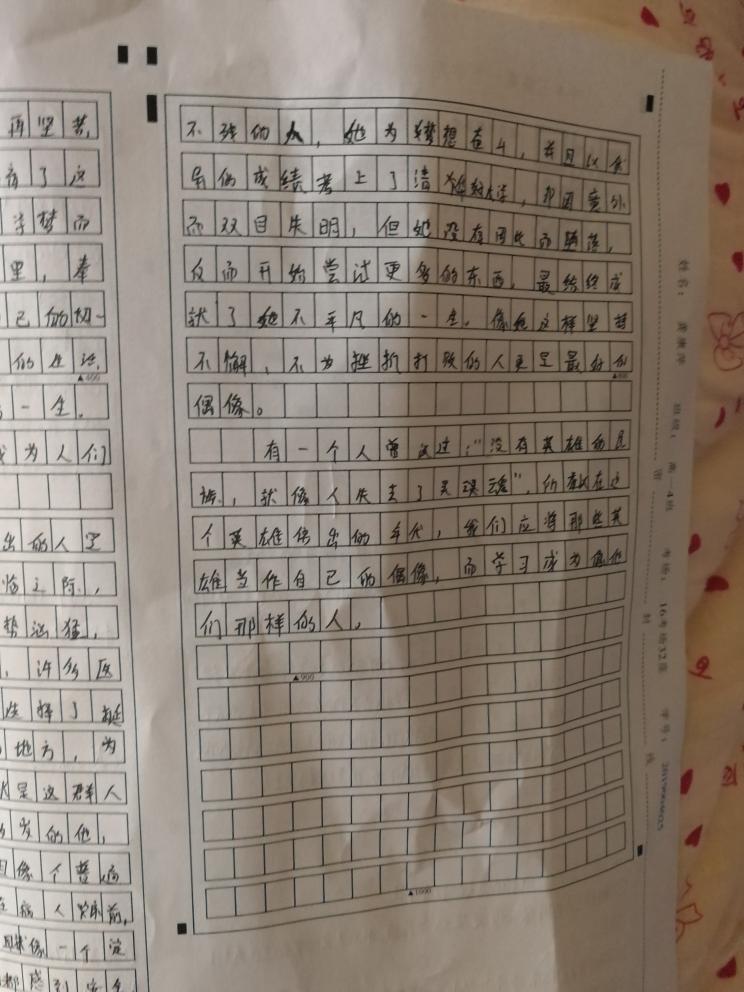 再坚苦,
有了这
学梦而
里,奉
己的切一
的生活.
一生.
成为人们
出的人里
临之际,
势汹猛,
,许多医
选择了
地方,为
是这群人
岁的他,
像个普通
病人
像一个
都感到安全
不强的人,她为梦想奋斗,并且以
的成绩考上了清华大学,却因意外
而双目失明,但她没有因此而堕落,
反而开始尝试更多的东西,最终终成
就了她不平凡的一生。像她这样坚苦
不懈,不为挫折打败的人更是最好的
▲800
偶像。
有一个人曾说过:"没有英雄的民
族,就像人失去了灵魂",所以在这
个英雄倍出的年代,我们应将那些英
雄当作自己的偶像,而学习成为像他
们那样的人。
▲900
▲1000
姓名:
班级:
高
4班
考场:
16考场32座
学号:
密
封
线